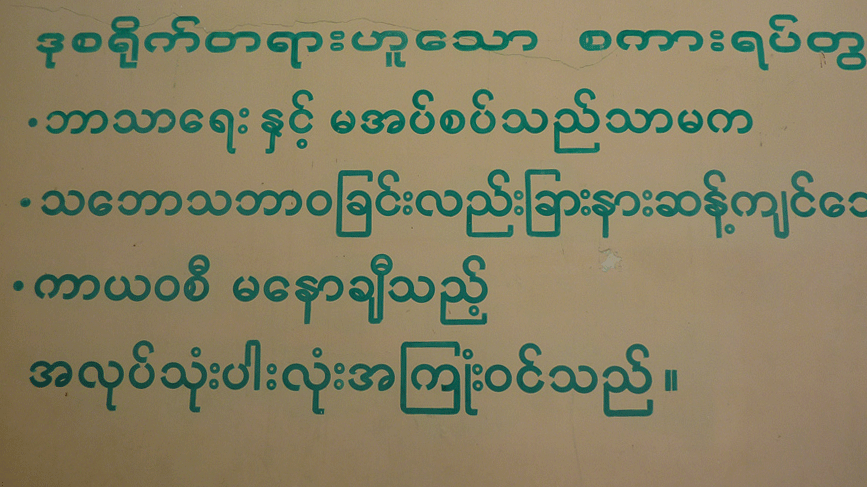 ဒုစရိုက်တရားဟူသော စကားရပ်တွ
•ဘာသာရေး နှင့် မအပ်စပ်သည်သာမက
•သဘောသဘာဝခြင်းလည်းခြားနားဆန့်ကျင်သေ
•ကာယဝစီ မနောချီသည့်
အလုပ်သုံးပါးလုံးအကြုံးဝင်သည်။